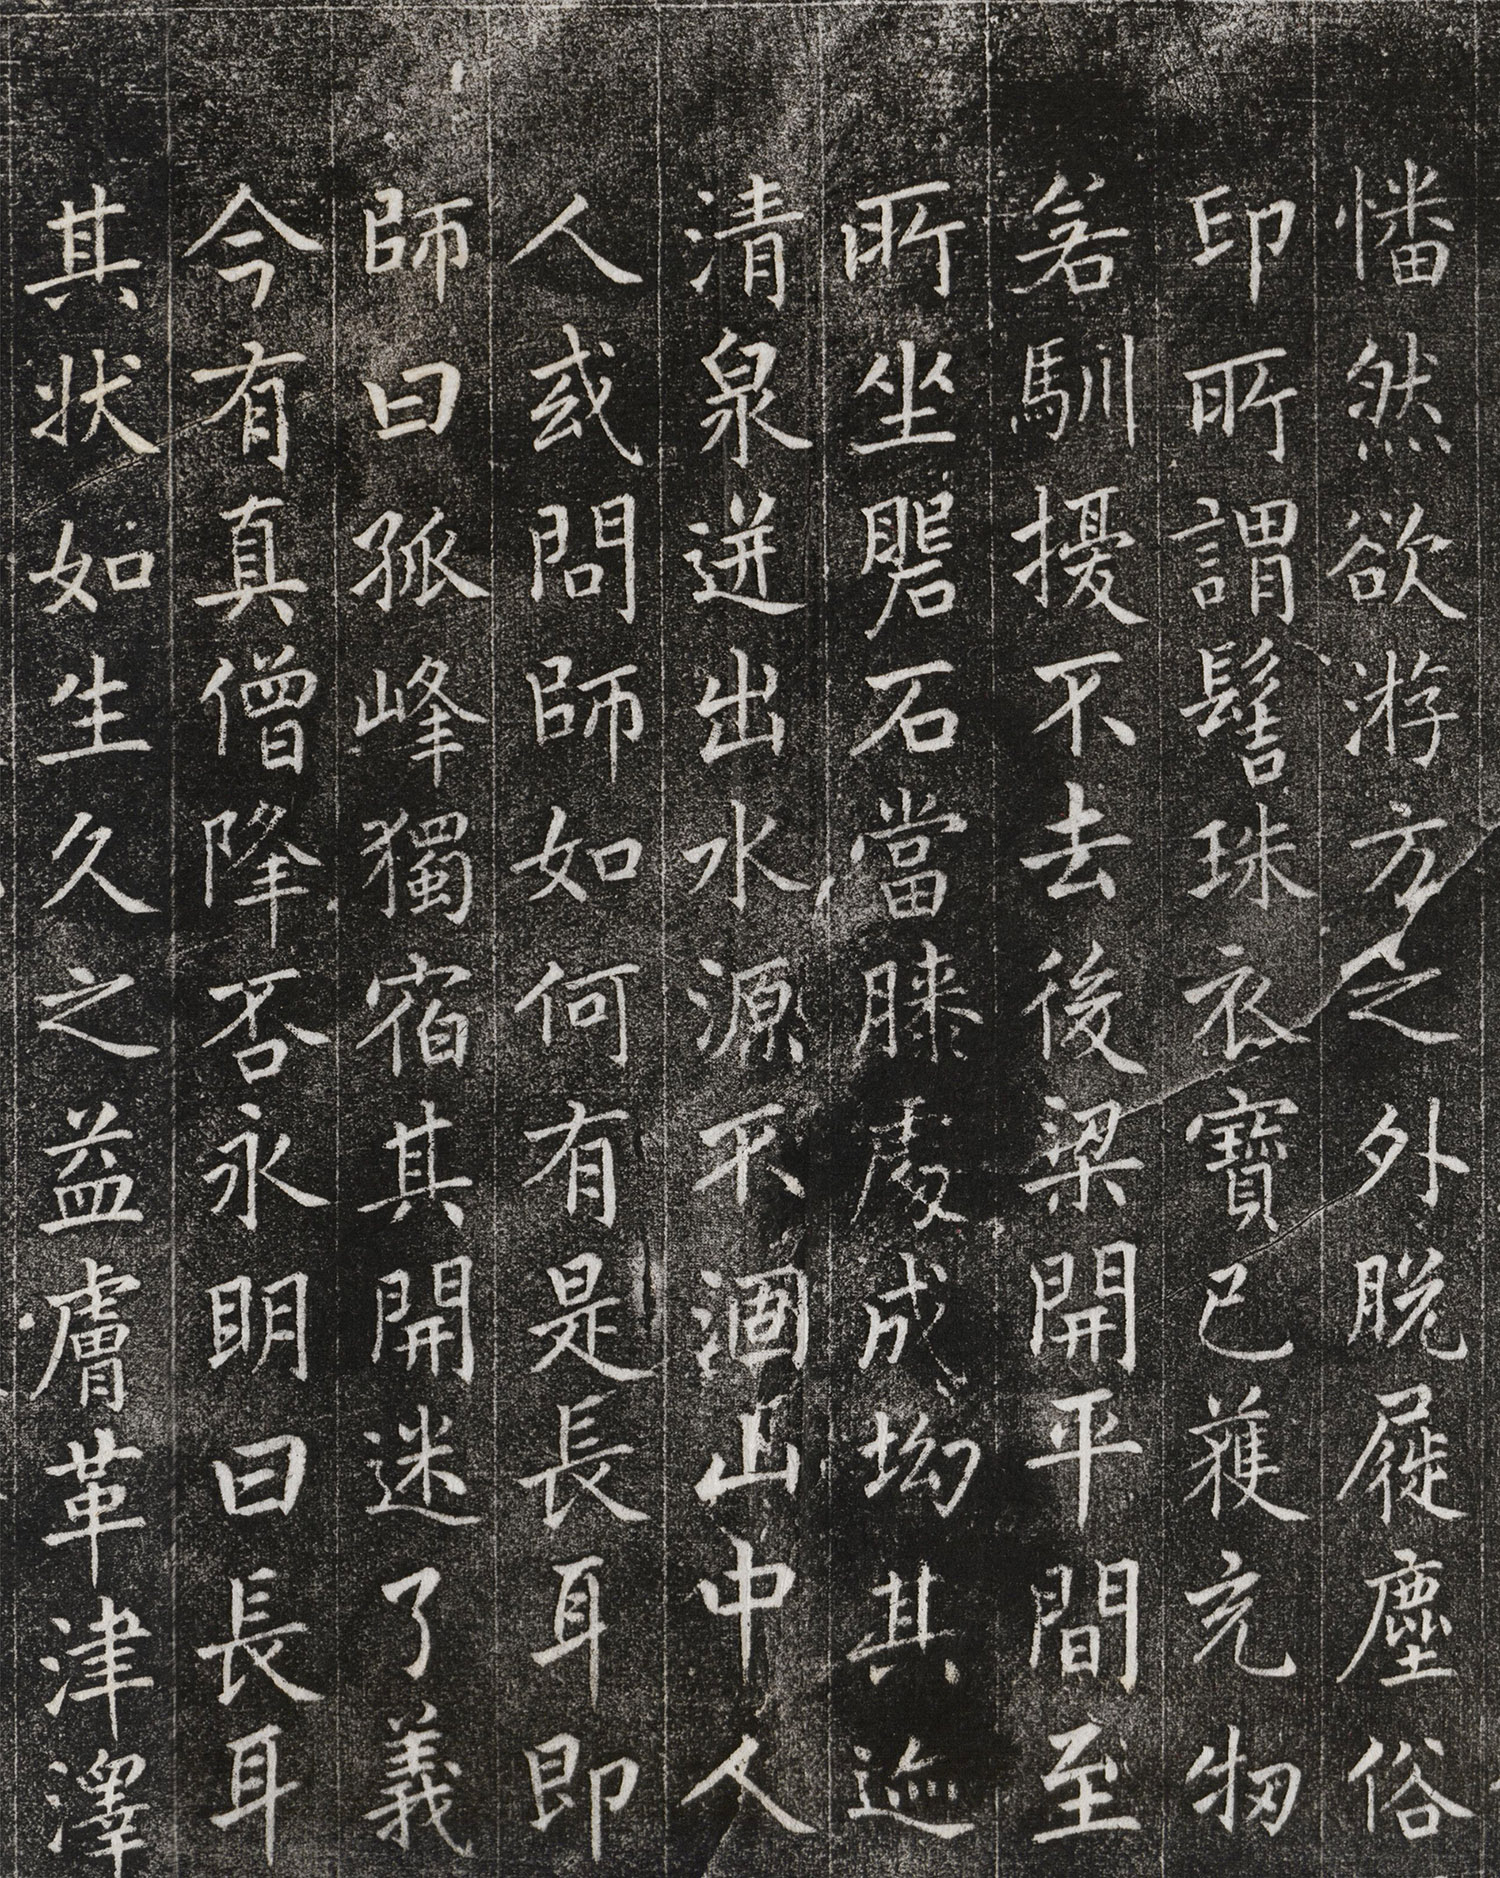 幡然欲游方之外脱屣塵俗
印所謂髻珠衣寶已獲充牣
若馴擾不去後梁開平間至
所坐磐石當膝處成坳其迹
清泉迸出水源不涸山中人
人或問師如何有是長耳即
師曰孤峰獨宿其開迷了義
今有真僧降否永明曰長耳
其狀如生久之益膚革津澤